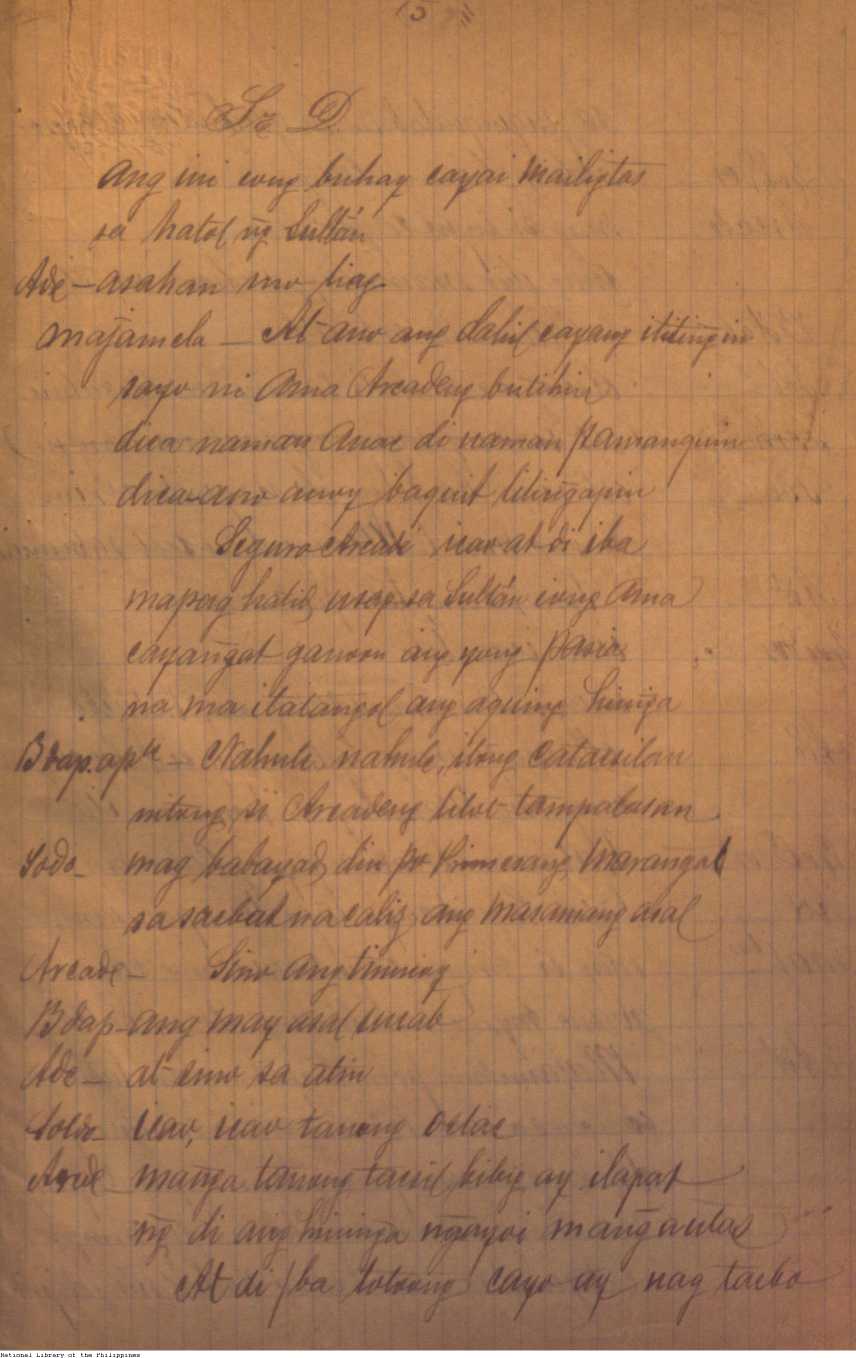 15
Sr. D.
Ang ini cong buhay cayai mailigtas
sa hatol ng̃ Sultán
Ade - asahan mo liag
Majamela - At ano ang dahil cayang ititing̃in
sayo ni Ama Arcadeng butihin
dica naman Anac di naman pamanquin
dica ano anoy baquit lilingapin
Seguro Arcade icao at di iba
mapag hatid usap sa Sultán iyong Ama
cayang̃at ganoon ang yong pasia
na ma itatangol ang aquing hining̃a
Bdap. ap - Nahuli nahuli, itong cataesilan
nitong si Arcadeng lilo't tampalasan
Sodo - mag babayad din po Primerang Marang̃al
sa sacbat na caliz ang masamang asal
Arcade - Sino ang tinuring
Bdap - ang may asal sucab
Ade - at sino sa atin
Soldo - icao, icao tauong oslac
Arcde - mang̃a tauong tacsil bibig ay ilapat
ng̃ di ang hining̃a ng̃ayoi mang̃autas
At di ba totoong cayo ay nag tacbo
National Library of the Philippines